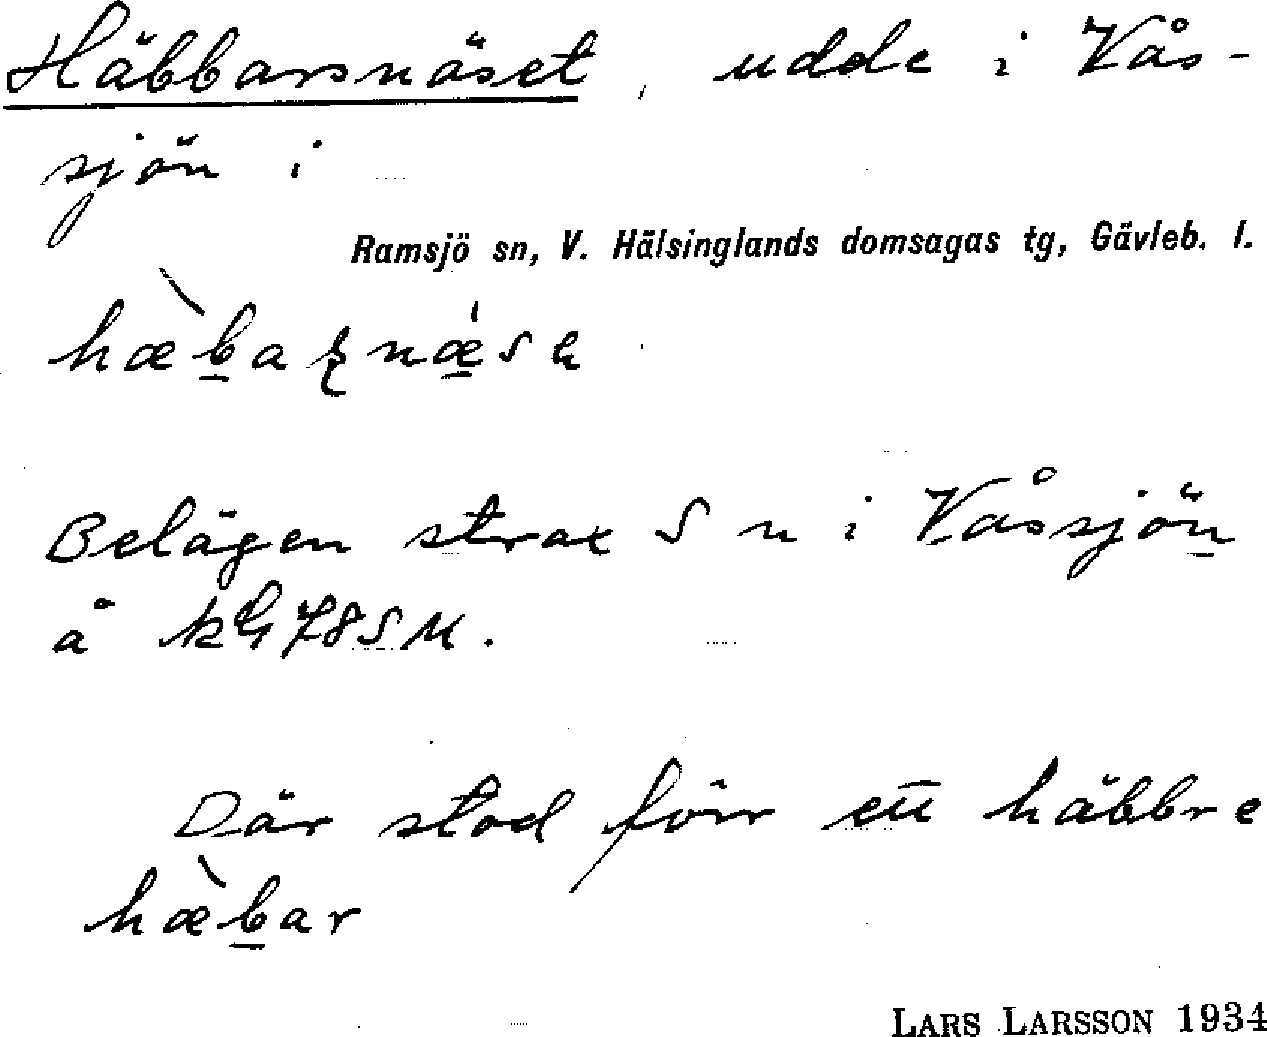 Häbbarsnäset, udde i Vås-
sjön i
Ramsjö sn, V. Hälsinglands domsagas tg, Gävleb. l.
Belägen strax S n i Våssjön
å kG 78 S M.
Där stod förr ett häbbre
hæ̀b̲ar
LARS LARSSON 1934